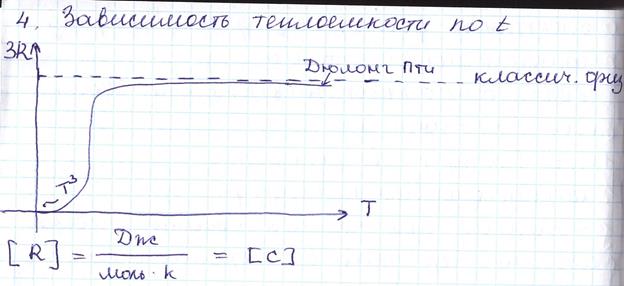 4. Зависимость теплоемкости по t
3R
Дюлонг Пти
классич. физ
~ T³
T
[R] = Дж / моль·k = [C]